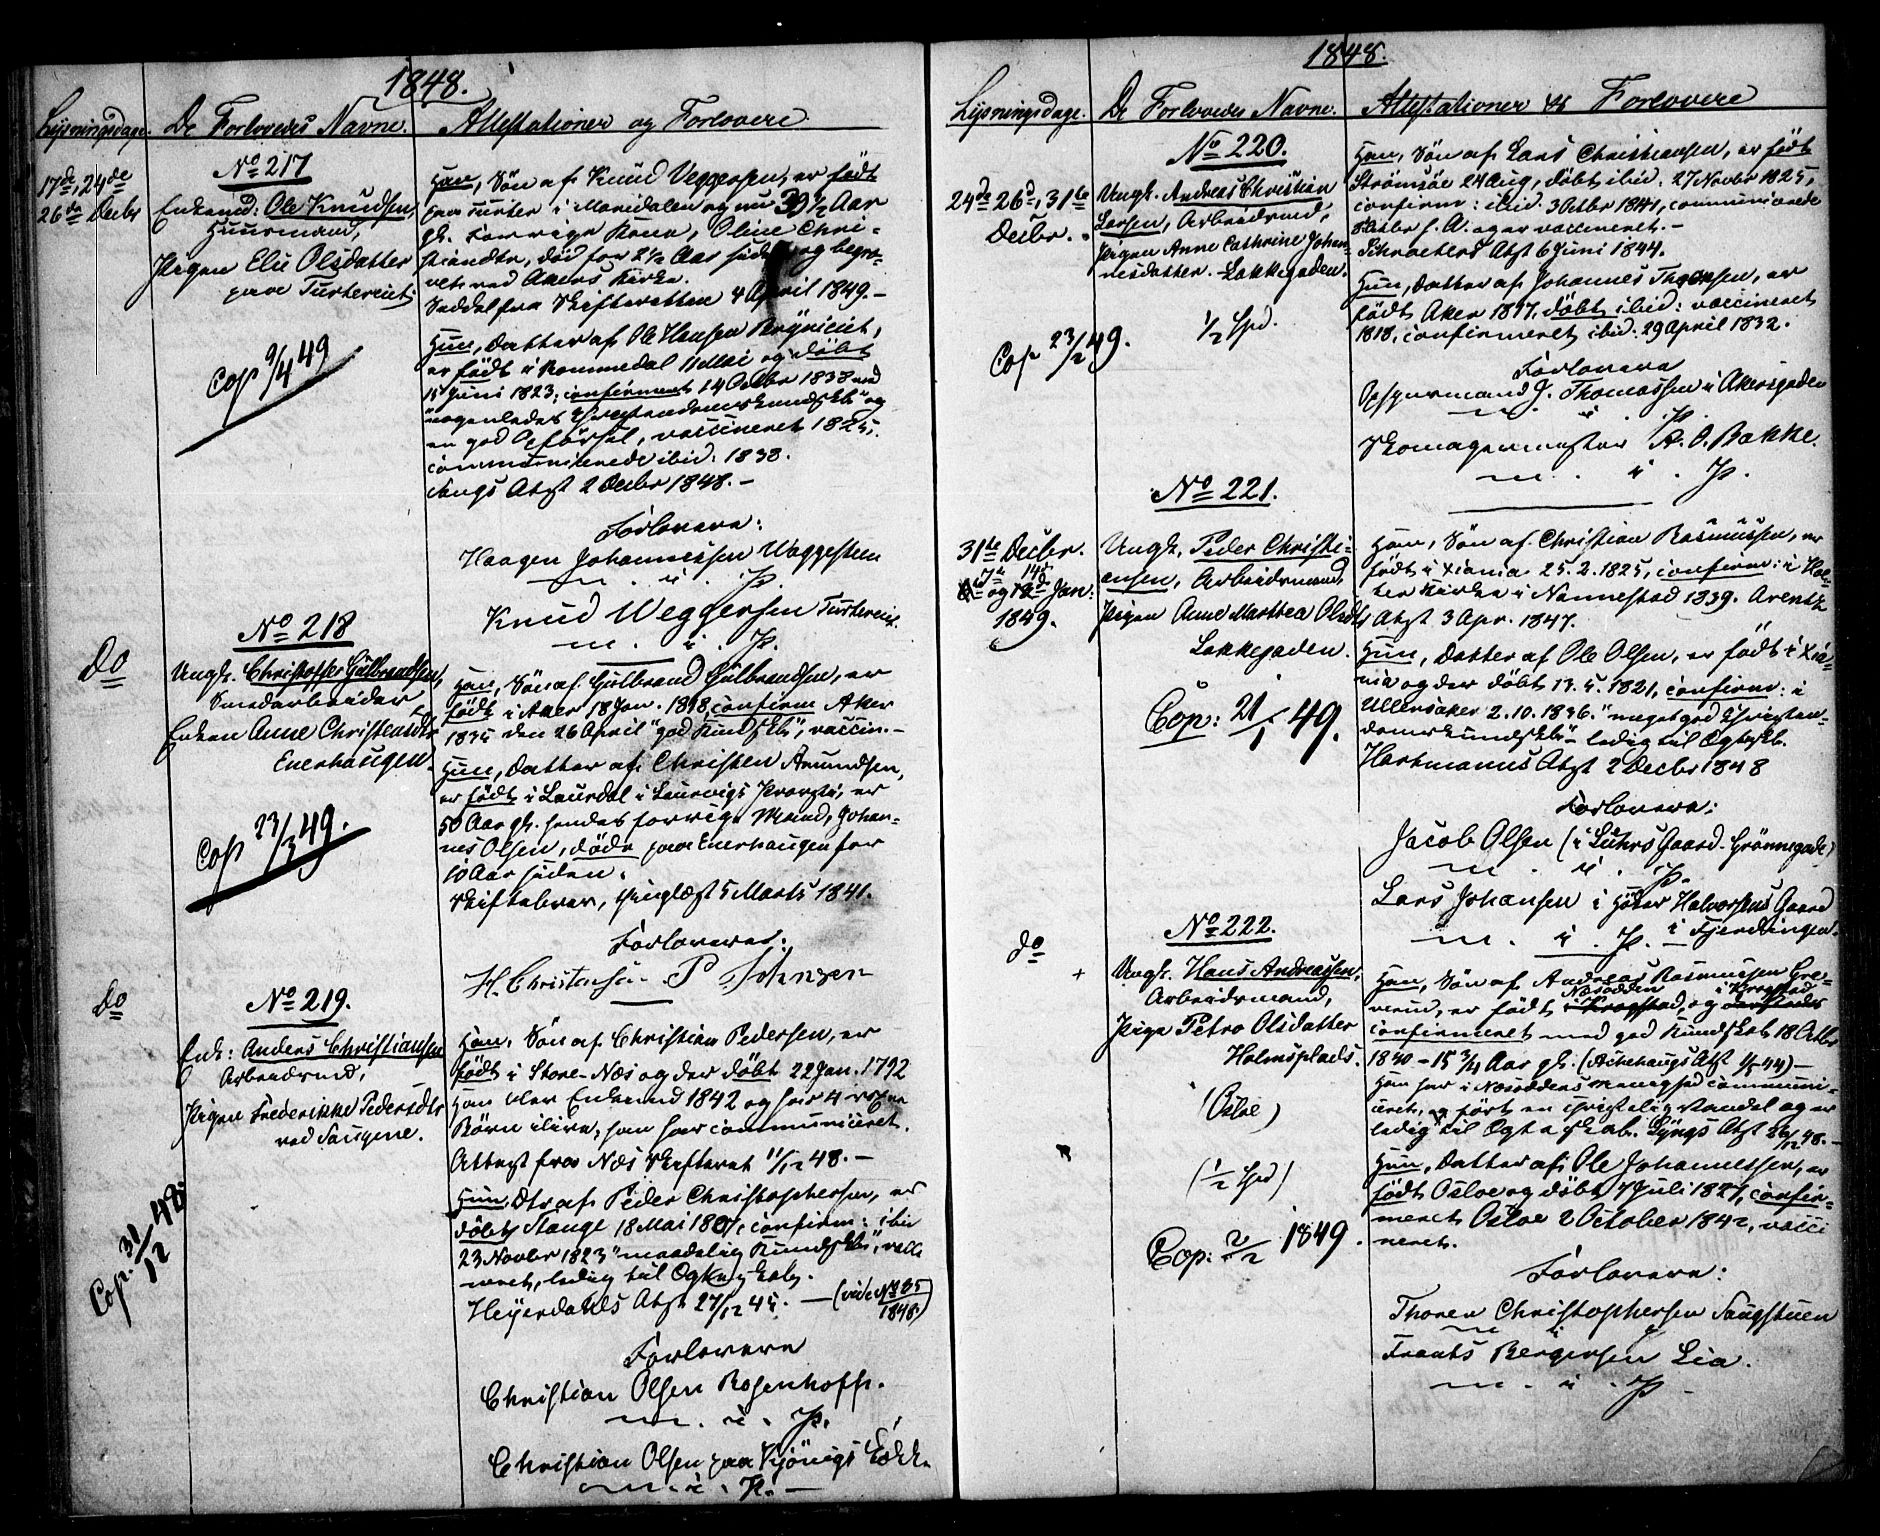 1848.
Lysningsdage. De Forlovedes Navne. Attestationer og Forlovere
17de, 24de
26de Decbr
No 217
Enkemd: Ole Knudsen,
Huusmand,
Pigen Elie Olsdatter
paa Turtereiet
Cop 9/4 49
Han, Søn af Knud Veggersen, er født
paa Turter i Maridalen og nu 39 1/2 Aar
gl. Forrige Kone, Oline Chri-
stiandtr, død for 2 1/2 Aar siden og begra-
vet ved Akers Kirke.
Seddel fra Skifteretten 4 April 1849.-
Hun, Datter af Ole Hansen
er født i Rommedal 11 Mai og døbt
15 Juni 1823, confirmeret 14 Octbr 1838 med
"nogenledes Christendomskundskb" og
en god Opførsel, vaccineret 1825.
communicerede ibid. 1838.
Langs Atst 2 Decbr 1848.-
Forlovere:
Haagen Johannessen Waggesteen
m. i. P.
Knud Weggersen Turtereiet.
m. i. P.
Do
No 218
Ungk. Christoffer Gulbrandsen,
Smedarbeider
Enken Anne Christensdtr
Enerhaugen.
Cop 23/3 49.
Han, Søn af Gulbrand Gulbrandsen, er
født i Aker 18 Jan. 1818, confirm Aker
1835 den 26 April "god Kundskb", vaccin.-
Hun, Datter af Christen Amundsen,
er født i Laurdal i Laurvigs Provsti, er
50 Aar gl. hendes forrige Mand, Johan-
nes Olsen, døde paa Enerhaugen for
10 Aar siden.
Skiftebrev, thinglæst 5 Marts 1841.
Forlovere:
H. Christensen P. Johnsen
Do
No 219.
Enk: Anders Christiansen
Arbeidsmd,
Pigen Frederikke Pedersdtr
ved Saugene.
Cop. 31/12 48
Han, Søn af Christian Pedersen, er
født i Store-Næs og der døbt 22 Jan. 1792
Han blev Enkemd 1842 og har 4 voxne
Børn ilive, han har communiceret.
Attest fra Næs Skifteret 11/12 48.-
Hun, Dtr af Peder Christophersen, er
døbt Stange 18 Mai 1807, confirm: ibid
23 Novbr 1823 "maadelig Kundskb", vacci
neret, ledig til Ægteskab.
Heyerdahls Atst 27/12 45. - (vide No 35/1848)
Forlovere
Christian Olsen Rosenhoff.
m. i. P.
Christian Olsen paa
m. i. P. -
1848.
Lysningsdage. De Forlovedes Navne. Attestationer & Forlovere
24de 26de, 31te
Decbr.
No 220.
Ungk. Andreas Christian
Larsen, Arbeidsmd,
Pigen Anne Cathrine Johan-
nesdatter. - Lakkegaden.
1/2 Spd.
Cop 23/2 49.
Han, Søn af Lars Christiansen, er født
Strømsøe 24 Aug, døbt ibid. 27 Novbr 1825,
confirm: ibid. 3 Octbr 1841, communicerede
Octbr s. A. og er vaccineret.-
Schroeters Atst 6 Juni 1844.
Hun, Datter af Johannes Thoresen, er
født Aker 1817, døbt ibid: vaccineret
1818, confirmeret ibid. 29 April 1832.
Forlovere
Opsynsmand J. Thomassen i Akersgaden
m. i. P.
Skomagermester A. O. Bakke.
m. i. P.
31te Decbr.
7de 14de
og Jan:
1849.
No 221.
Ungk. Peder Christi-
ansen, Arbeidsmand,
Pigen Anne Marthea Olsdtr
Lakkegaden.
Cop: 21/1 49.
Han, Søn af Christian Rasmussen, er
født i Xiania 25.2.1825, confirm: i Hol-
ter Kirke i Nannestad 1839. Arentz
Atst 3 Apr. 1847.
Hun, Datter af Ole Olsen, er født i Xia-
nia og der døbt 13.5.1821, confirm: i
Ullensaker 2.10.1836. "meget god Christen-
domskundskb" - ledig til Ægtesk.
Hartmanns Atst 2 Decbr 1848
Forlovere:
Jacob Olsen (i Luhrs Gaard. Grønnegade)
m. i. P.
Lars Johansen i Halvorsens Gaard
m. i. P. - i Fjerdingen.
do
No 222.
Ungk. Hans Andreassen,
Arbeidsmand,
Pige Petro Olsdatter
Holmsplads.
(Osloe)
(1/2 Spd)
Cop: 2/2 1849.
Han, Søn af Andreas Rasmussen Gre-
verud, er født i Krogstad, og
Næsodden i Krogstad
confirmeret med god Kundskab 18 Octbr
1840 - 15 3/4 Aar gl. (Aschehaugs Atst 1/5 44) -
Han har i Næsoddens Menighed communi-
ceret, og ført en christelig Vandel og er
ledig til Ægteskab. Lyngs Atst 26/12 48.-
Hun, Datter af Ole Johannessen, er
født Osloe og døbt 7 Juli 1827, confir-
meret Osloe 2 October 1842, vacci
neret.
Forlovere:
Thoren Christophersen Saugstuen
m i P
Frants Bergersen Lia.
m. i. P. -